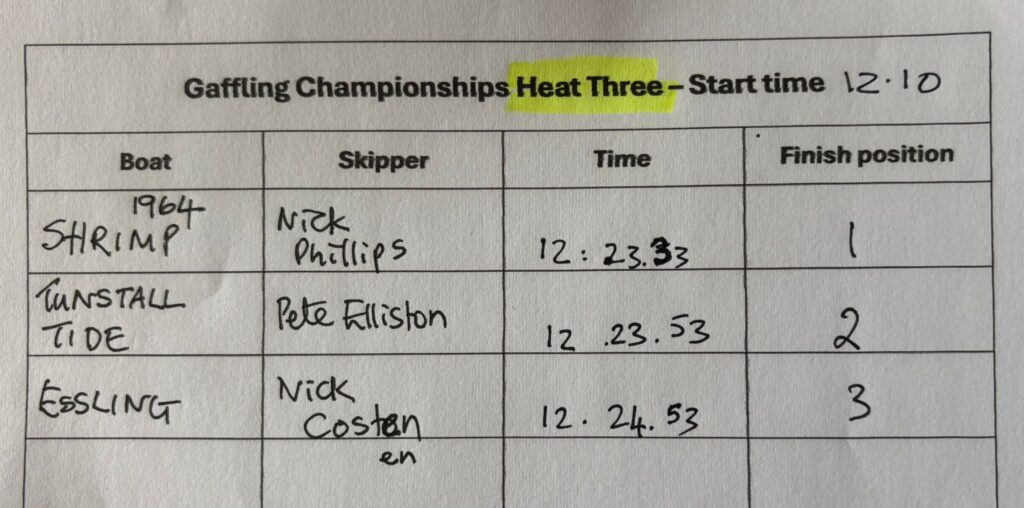 Gaffling Championships Heat Three – Start time 12.10
Boat Skipper Time Finish position
1964
SHRIMP
Nick
Phillips
12:23.33
1
TUNSTALL
TIDE
Pete Elliston
12.23.53
2
ESSLING
Nick
Costen
en
12.24.53
3